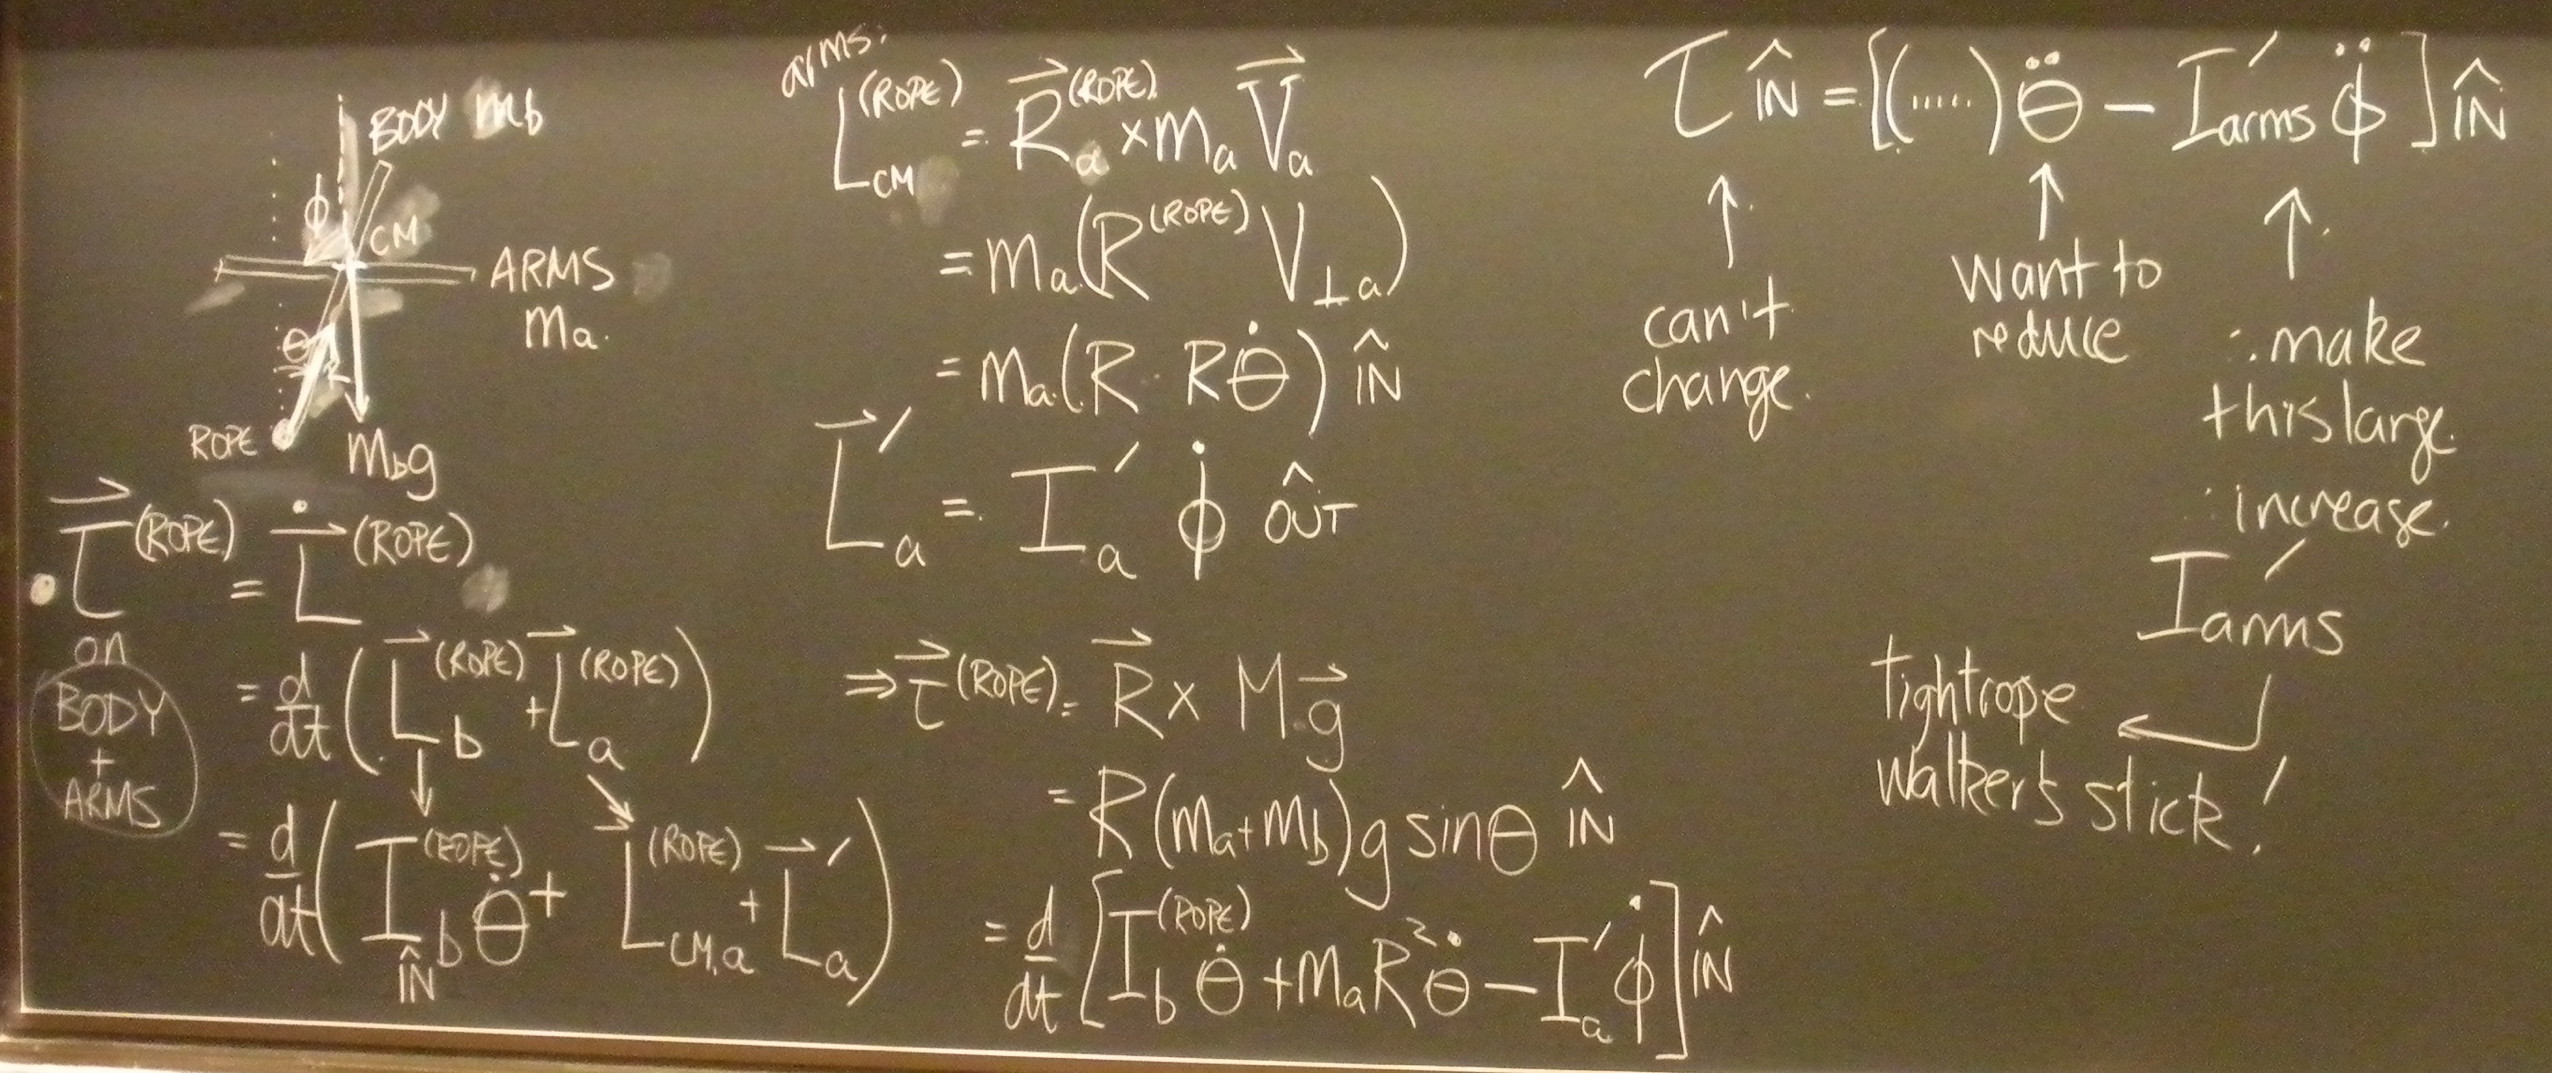 BODY mb
ϕ
CM
ARMS
ma.
θ
R
ROPE
Mbg
τ⃗ (ROPE) = L⃗̇ (ROPE)
on
BODY
+
ARMS
= d/dt ( L⃗b (ROPE) + L⃗a (ROPE) )
= d/dt ( Ib (ROPE) θ̇ IN̂ + L⃗CM,a (ROPE) + L⃗′a )
arms:
LCM (ROPE) = R⃗a (ROPE) × ma V⃗a
= ma (R (ROPE) V⊥a)
= ma (R · Rθ̇) IN̂
L⃗′a = I′a ϕ̇ OUT̂
⇒ τ⃗ (ROPE) = R⃗ × M g⃗
= R (ma+mb) g sinθ IN̂
= d/dt [ Ib (ROPE) θ̇ + maR²θ̇ − I′a ϕ̇ ] IN̂
τ IN̂ = [(.....) θ̈ − I′arms ϕ̈ ] IN̂
↑ ↑ ↑
can't
change.
want to
reduce
∴ make
this large.
∴ increase.
I′arms
tightrope
walker's stick!